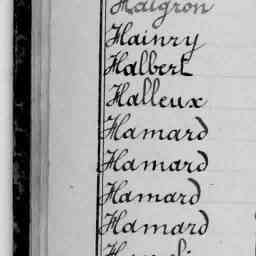 Halgron
Hainry
Halbert
Halleux
Hamard
Hamard
Hamard
Hamard